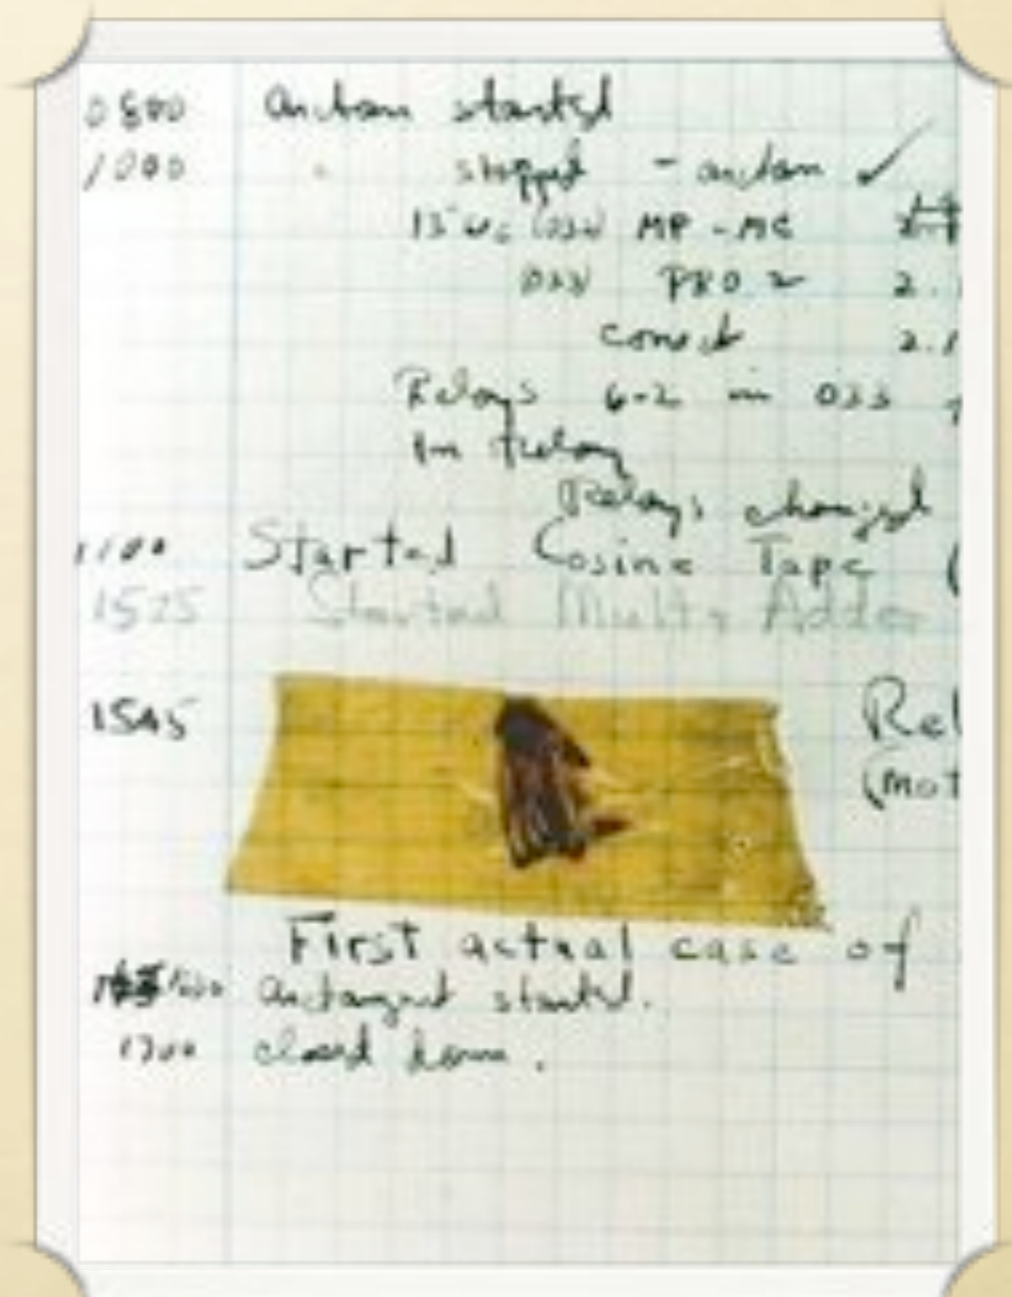 0800 antan started
1000 " stopped - antan ✓
13"uc (032) MP - MC
033 PRO 2 2.
conect 2.1
Relays 6-2 in 033
in relay
Relays changed
1100 Started Cosine Tape (
1525 Started Multy Adder
1545 Rel
(mot
First actual case of
1630 antangent started.
1700 closed down.